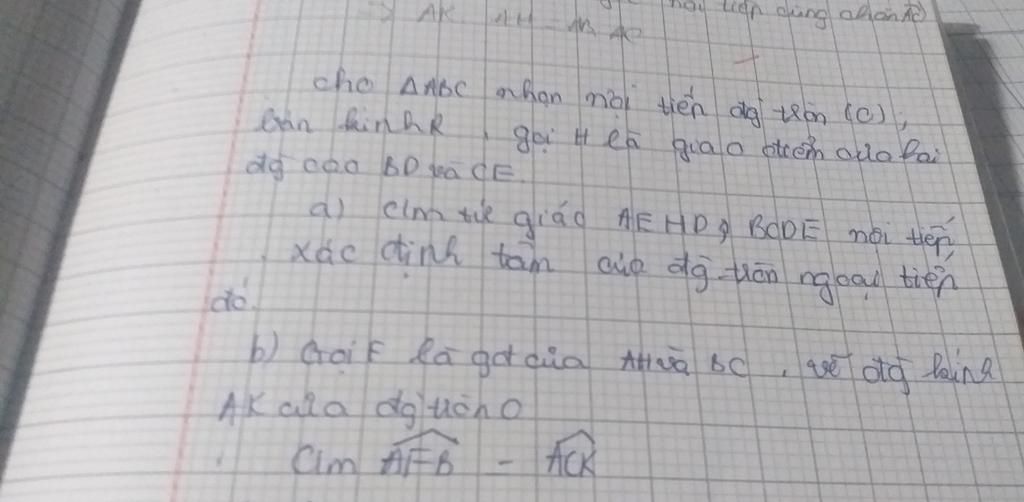 → AK AH = AB AC nội tiếp dùng chắn
cho ΔABC nhọn nội tiếp đg tròn (O),
bán kính R, gọi H là giao điểm của hai
đg cao BD và CE
a) C/m tứ giác AEHD, BCDE nội tiếp,
xác định tâm của đg tròn ngoại tiếp
đó.
b) Gọi F là gđ của AH và BC, vẽ đg kính
AK của đg tròn O
C/m AFB = ACK